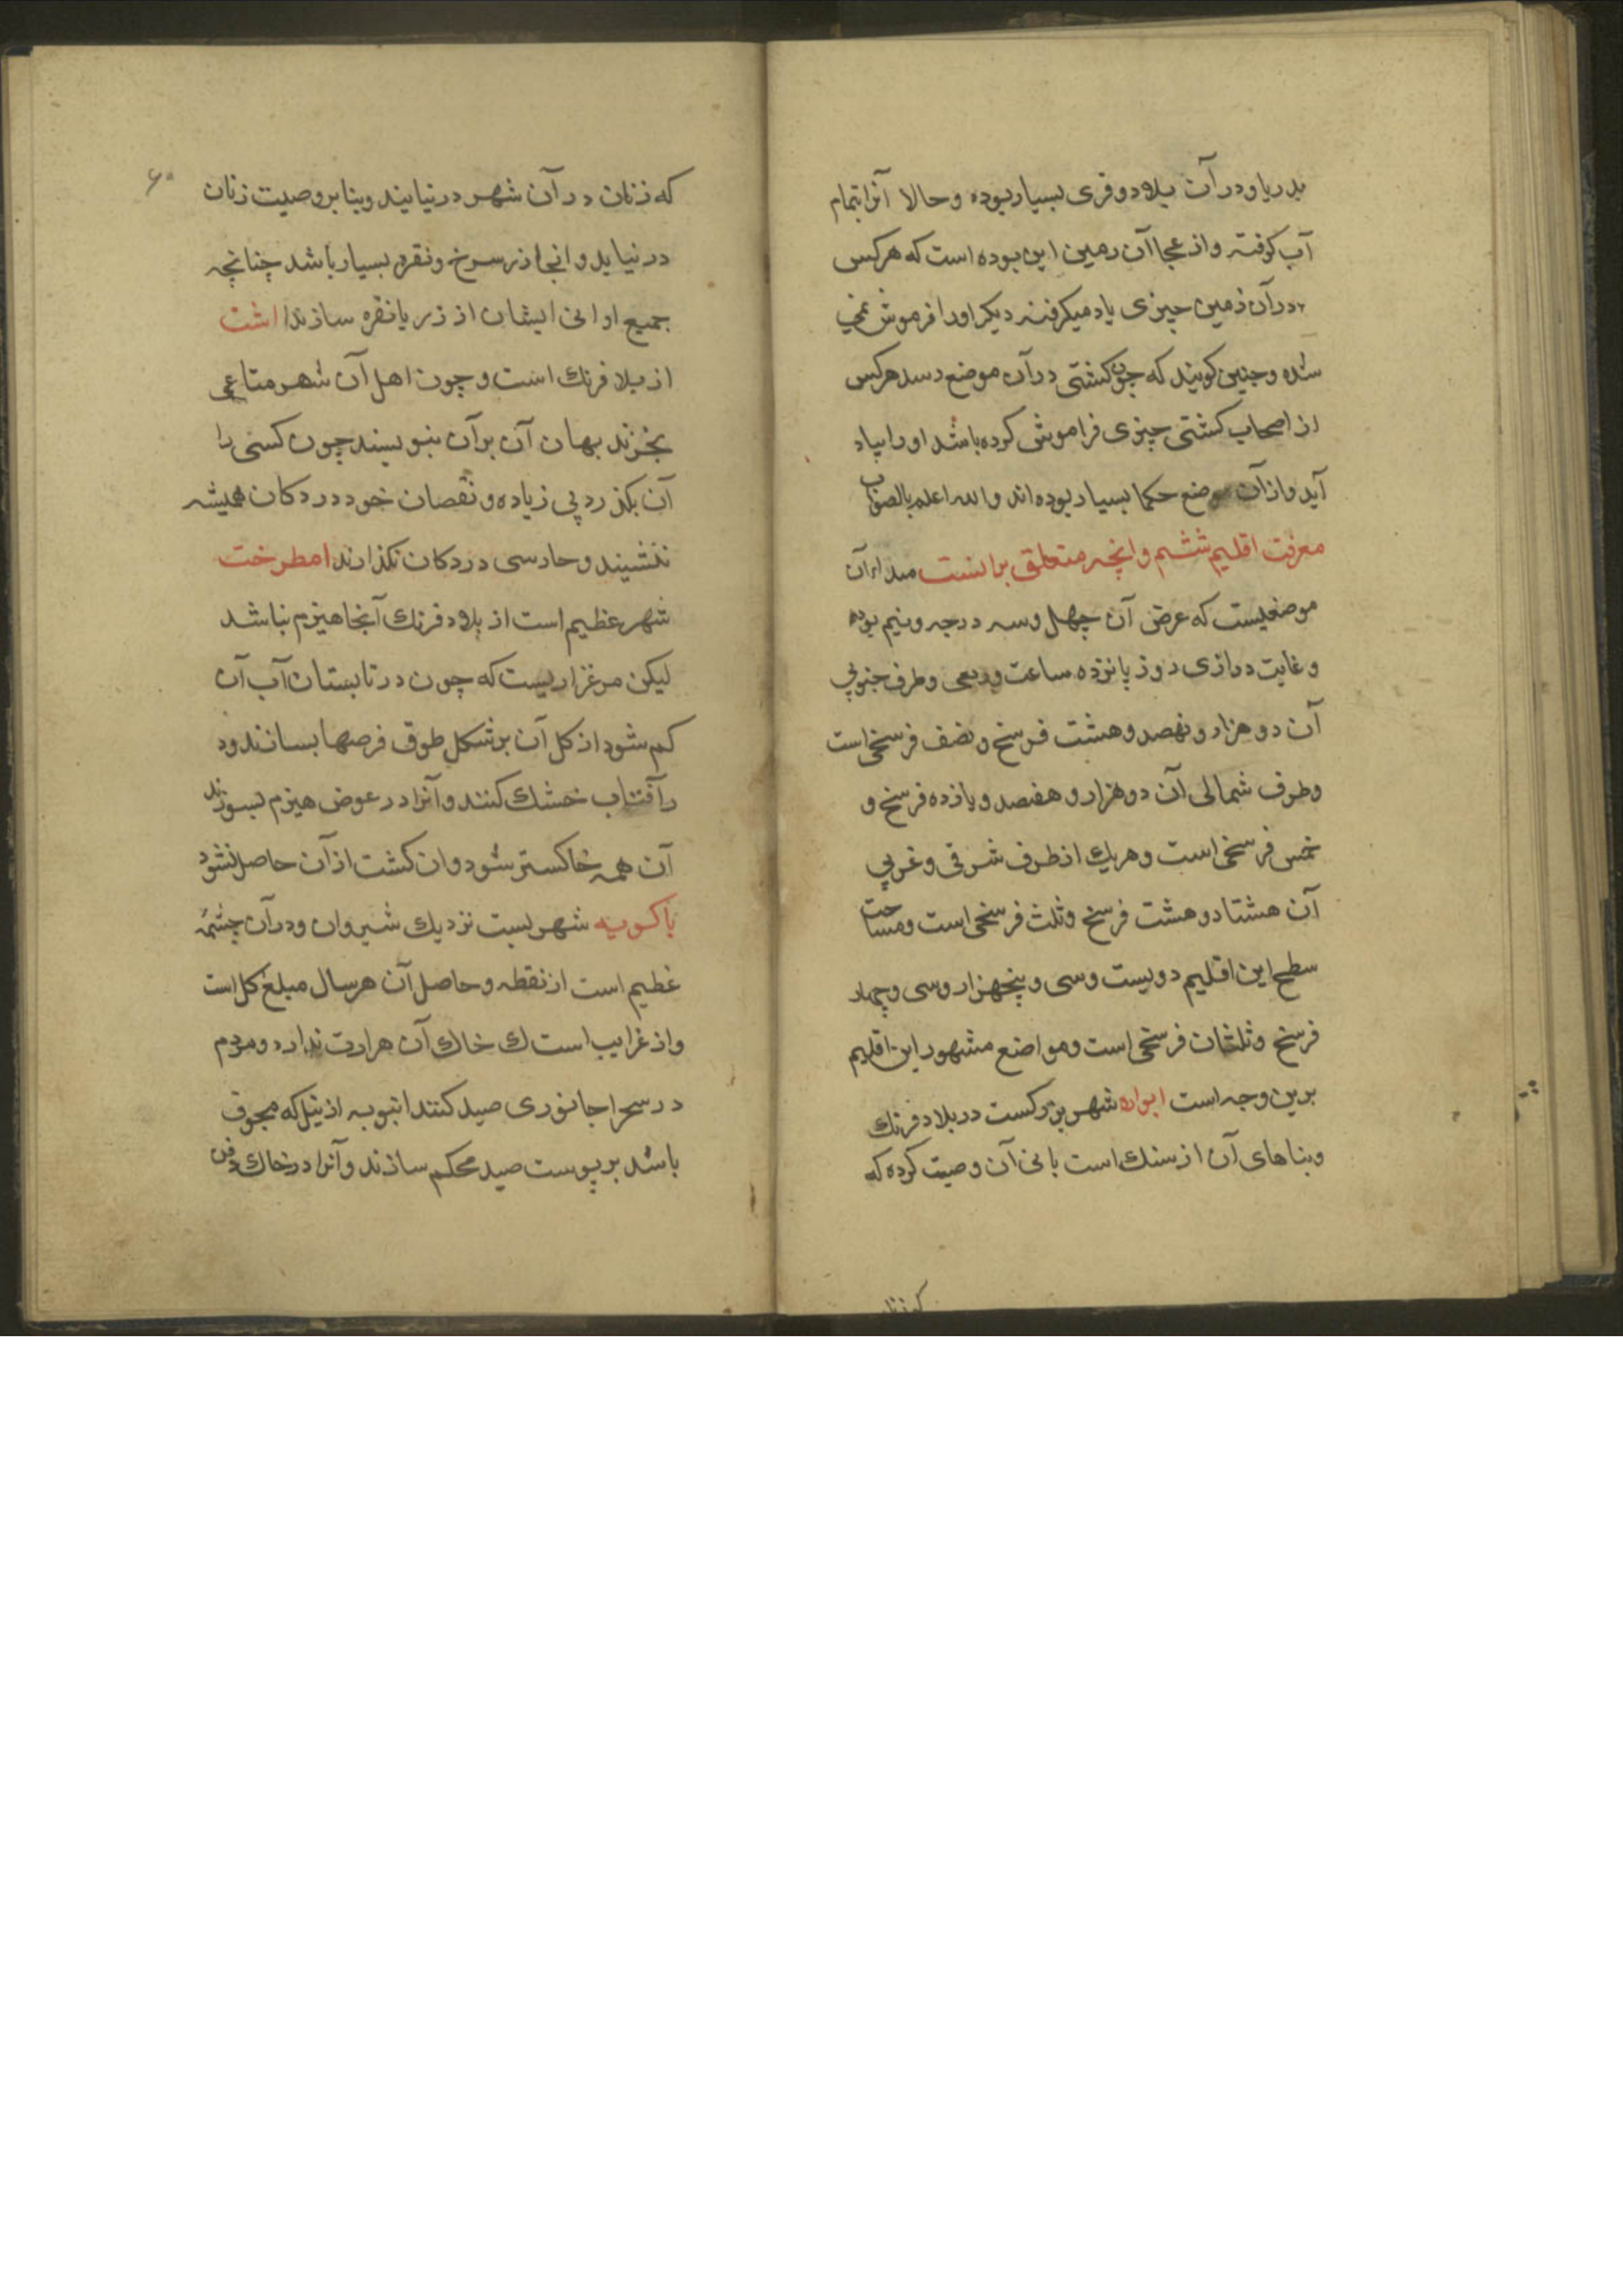 بدریا و در آن بلاد و قری بسیار بوده و حالا آنرا بتمام
آب کرفته و از عجا آن زمین این بوده است که هر کس
در آن زمین چیزی یاد میکرفته دیکر اورا فرموش نمی
شده و چنین کویند که چون کشتی در آن موضع رسد هر کس
از اصحاب کشتی چیزی فراموش کرده باشد او را بیاد
آید و از آن موضع حکما بسیار بوده اند والله اعلم بالصواب
معرفت اقلیم ششم و انچه متعلق بدانست مبداء آن
موضعیست که عرض آن چهل و سه درجه و نیم بوده
و غایت درازی روز پانزده ساعت و ربعی و طرف جنوبی
آن دو هزار و نهصد و هشت فرسخ و نصف فرسخی است
و طرف شمالی آن دو هزار و هفصد و یازده فرسخ و
خمس فرسخی است و هریك از طرف شرقی و غربی
آن هشتاد و هشت فرسخ و ثلث فرسخی است و مساحت
سطح این اقلیم دویست و سی و پنجهزار و سی و چهار
فرسخ و ثلثان فرسخی است و مواضع مشهور این اقلیم
برین وجه است ابواره شهر بزرکست در بلاد فرنك
و بناهای آن از سنك است بانی آن وصیت کرده که
که زنان
۶۰
که زنان در آن شهر در نیایند و بنا بر وصیت زنان
در نیاید و انجا زر سرخ و نقره بسیار باشد چنانچه
جمیع اوانی ایشان از زر یا نقره سازند اشت
از بلا فرنك است و چون اهل آن شهر متاعی
بخرند بهان آن بر آن بنویسند چون کسی را
آن بکذرد پی زیاده و نقصان خود در دکان همیشه
ننشیند و حارسی در دکان نکذارند امطرخت
شهر عظیم است از بلاد فرنك آنجا هیزم نباشد
لیکن مرغزاریست که چون در تابستان آب آن
کم شود از کل آن بر شکل طوق قرصها بسازند و د
ر آفتاب خشك کنند و آنرا در عوض هیزم بسوزند
آن همه خاکستر شود و ان کشت از آن حاصل نشود
باکویه شهریست نزدیك شیروان و در آن چشمه
عظیم است از نقطه و حاصل آن هر سال مبلغ کل است
و از غرایب است ك خاك آن هرارت ندارد و مردم
در سحرا جانوری صید کنند انبوبه از نیل که مجوف
باشد بر پوست صید محکم سازند و آنرا در خاك دفن